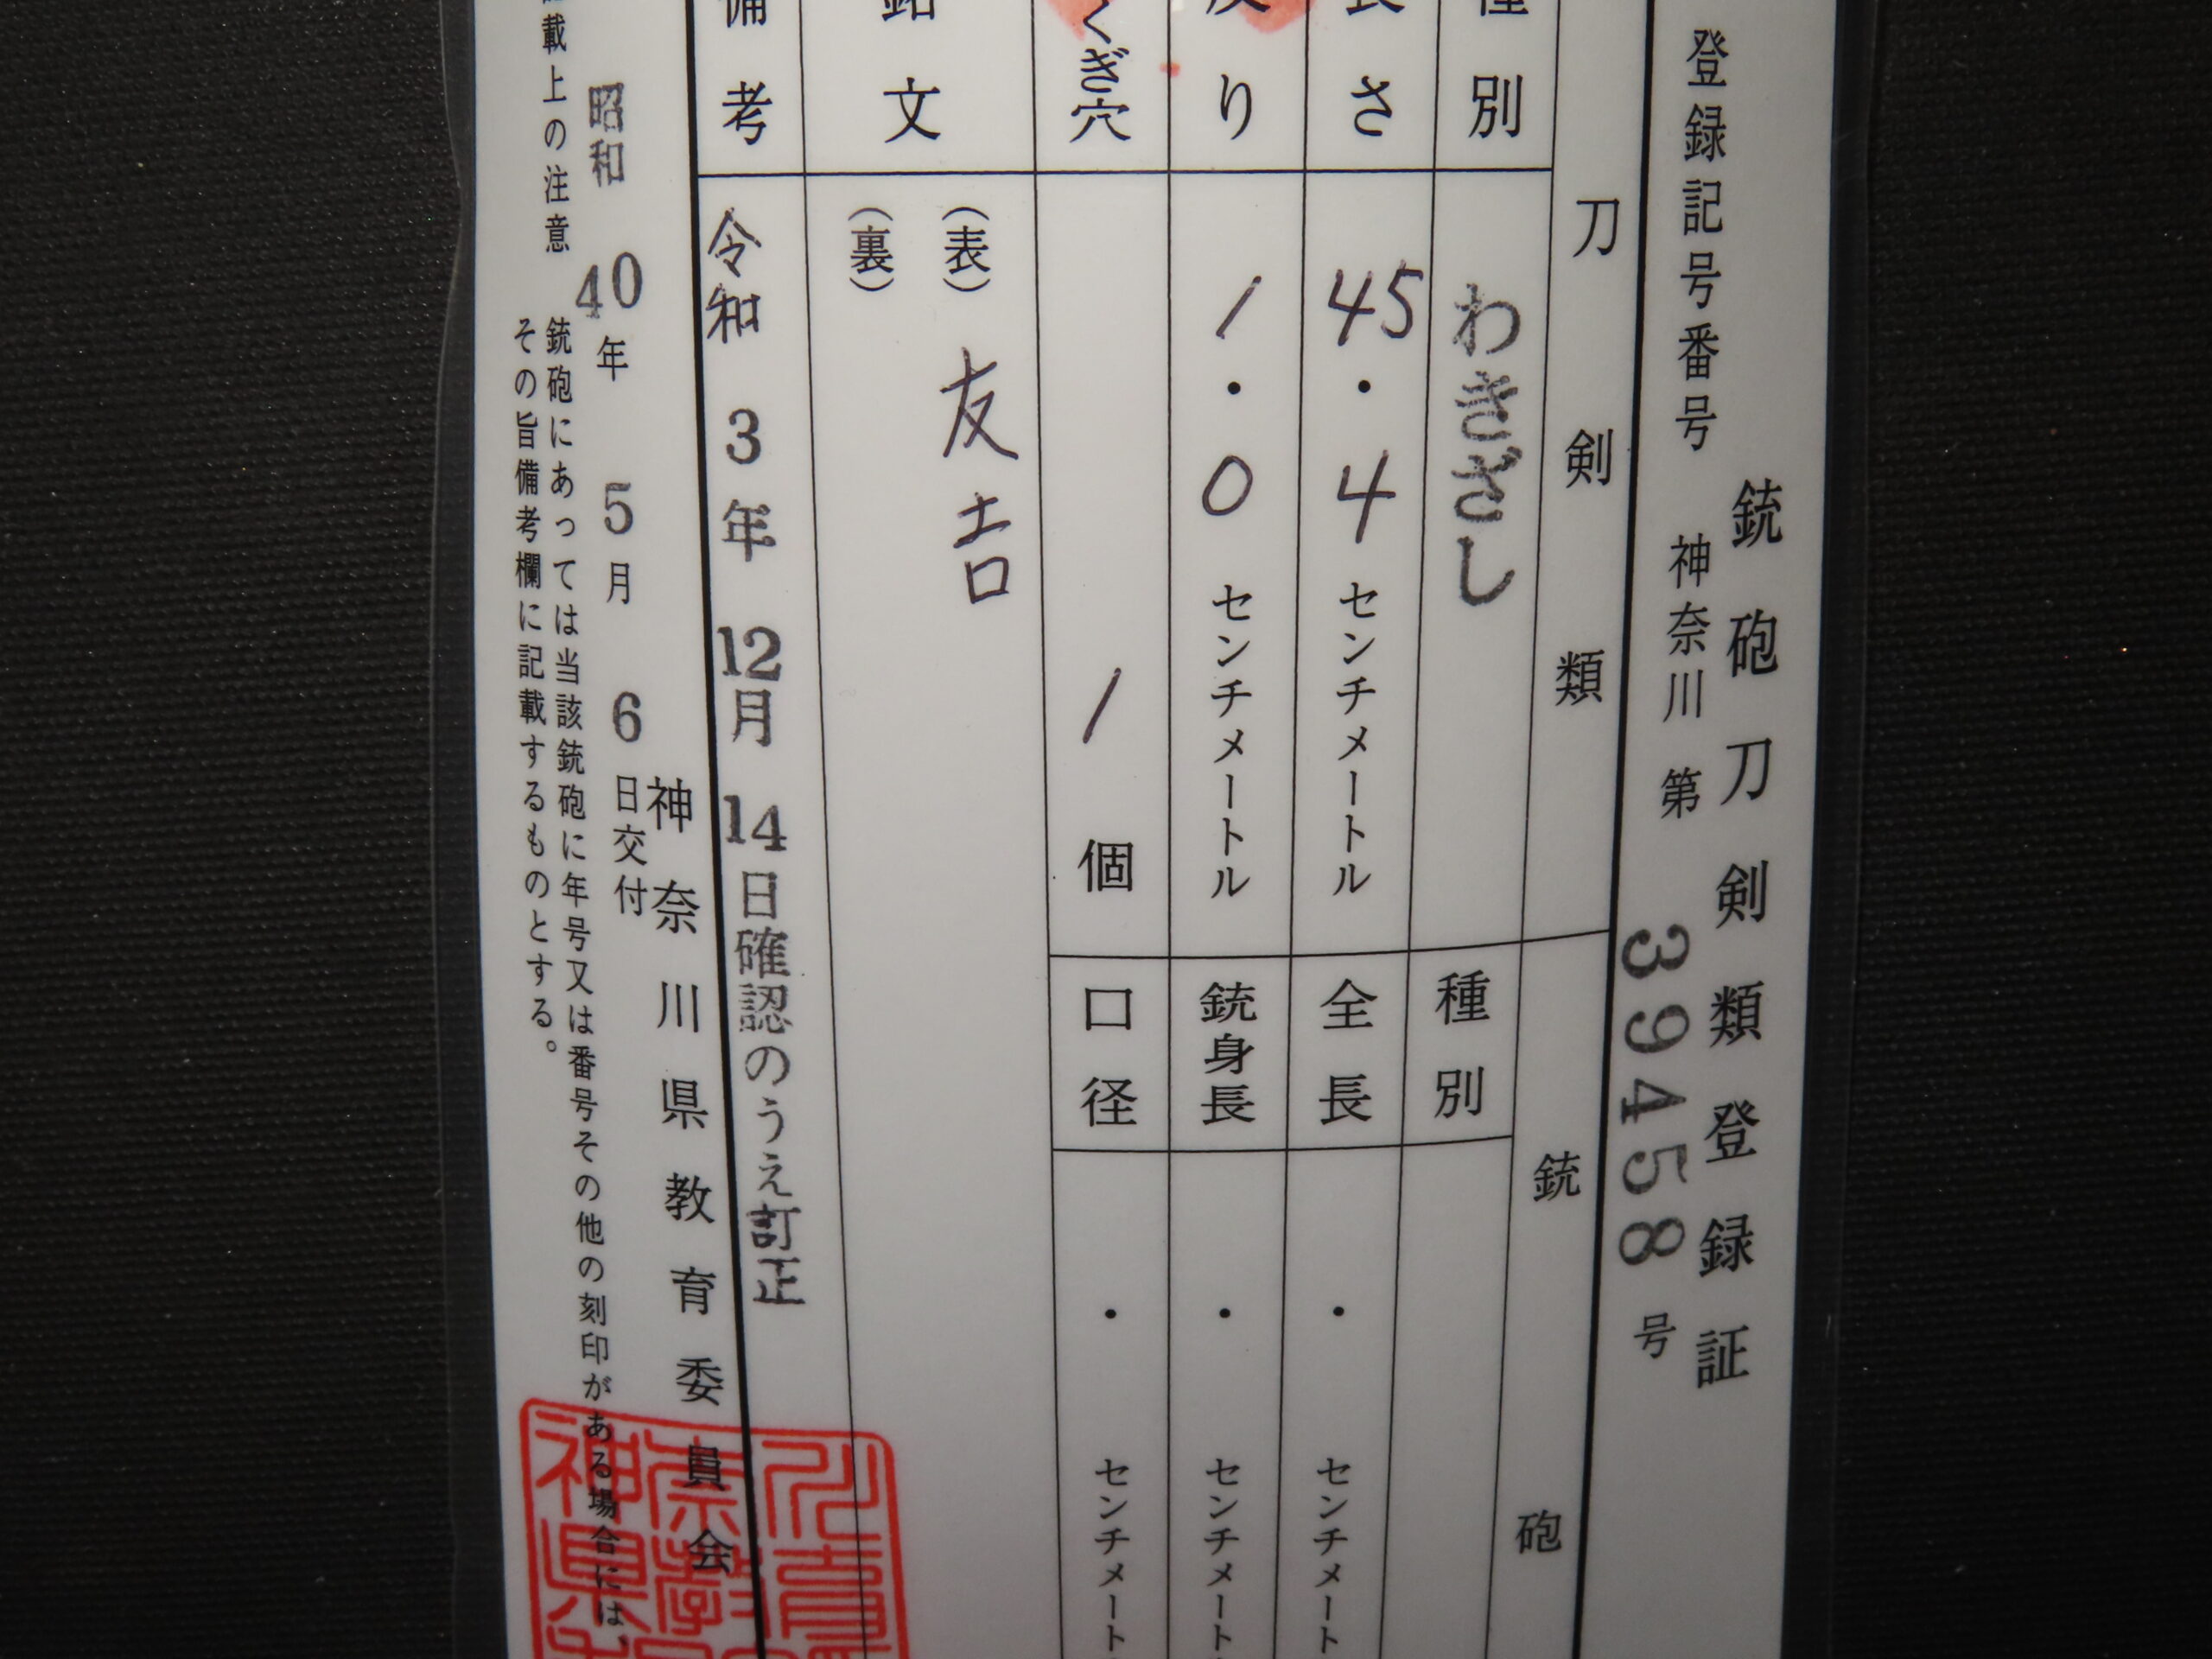 銃砲刀剣類登録証
登録記号番号 神奈川 第 39458 号
刀剣類
銃砲
種別 わきざし
種別
長さ 45.4 センチメートル
全長 ・ センチメート
反り 1.0 センチメートル
銃身長 ・ センチメート
くぎ穴 1 個
口径 ・ センチメート
銘文
(表) 友吉
(裏)
備考 令和 3 年 12 月 14 日確認のうえ訂正
神奈川県教育委員会
昭和 40 年 5 月 6 日交付
載上の注意 銃砲にあっては当該銃砲に年号又は番号その他の刻印がある場合には、
その旨備考欄に記載するものとする。